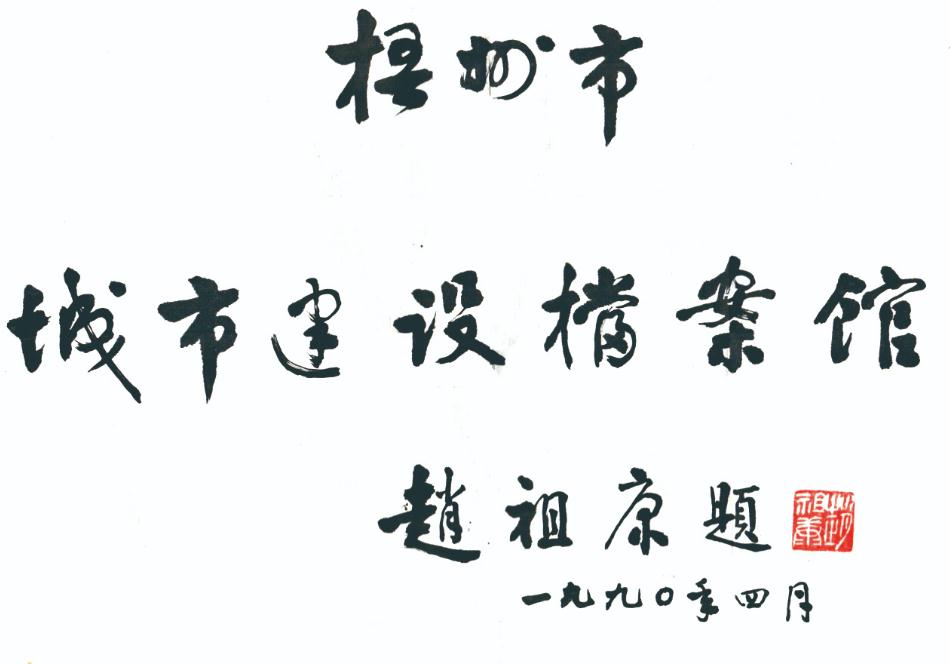 梧州市
城市建设檔案館
趙祖康題
趙祖康
一九九〇年四月